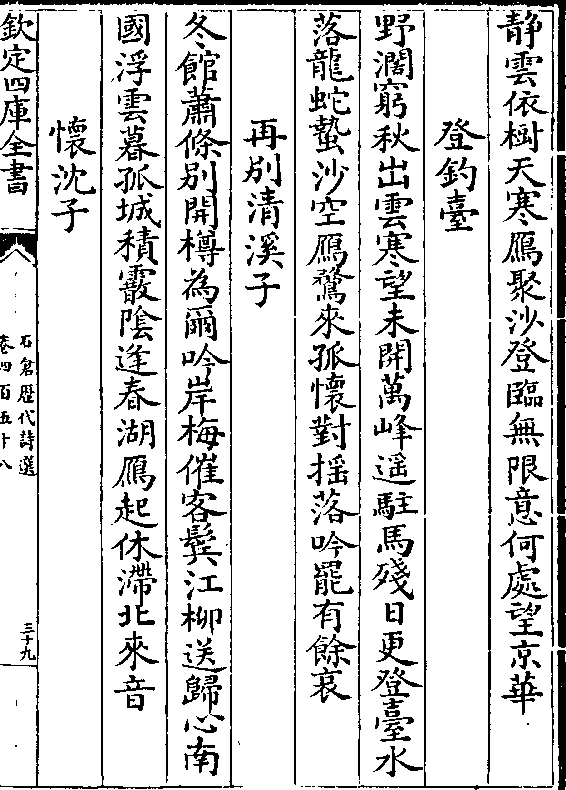 靜雲依樹天寒鴈聚沙登臨無限意何處望京華
登釣臺
野濶窮秋出雲寒望未開萬峰遥駐馬殘日更登臺水
落龍蛇蟄沙空鴈鶩來孤懷對揺落吟罷有餘哀
再別清溪子
冬館蕭條別開樽為爾吟岸梅催客鬂江柳送歸心南
國浮雲暮孤城積霰陰逢春湖鴈起休滯北來音
懷沈子
欽定四庫全書
石倉歴代詩選
卷四百五十八
三十九